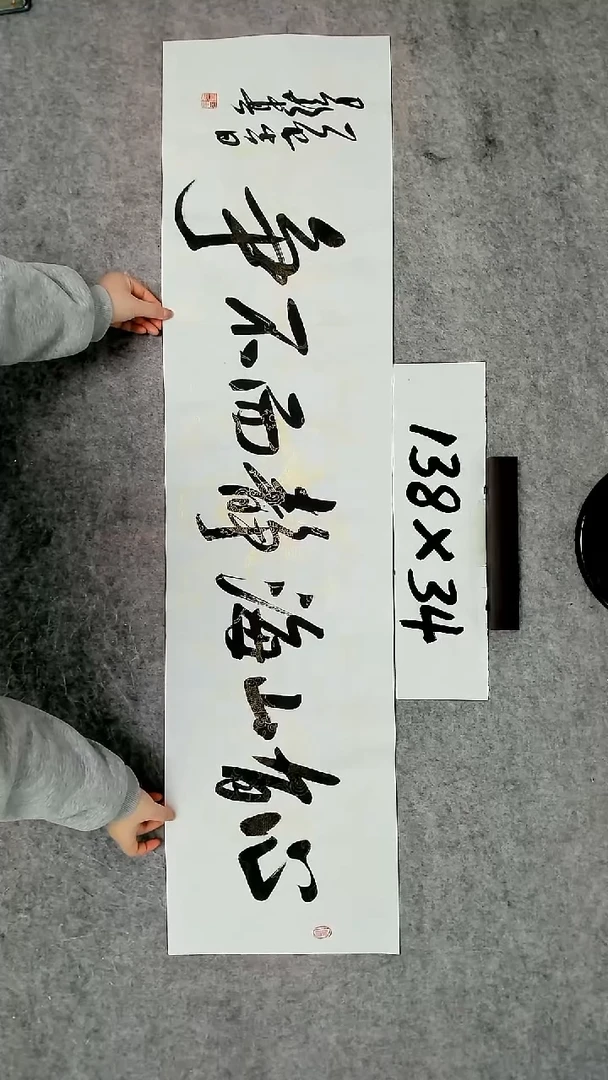 心有山海静而不争
138×34